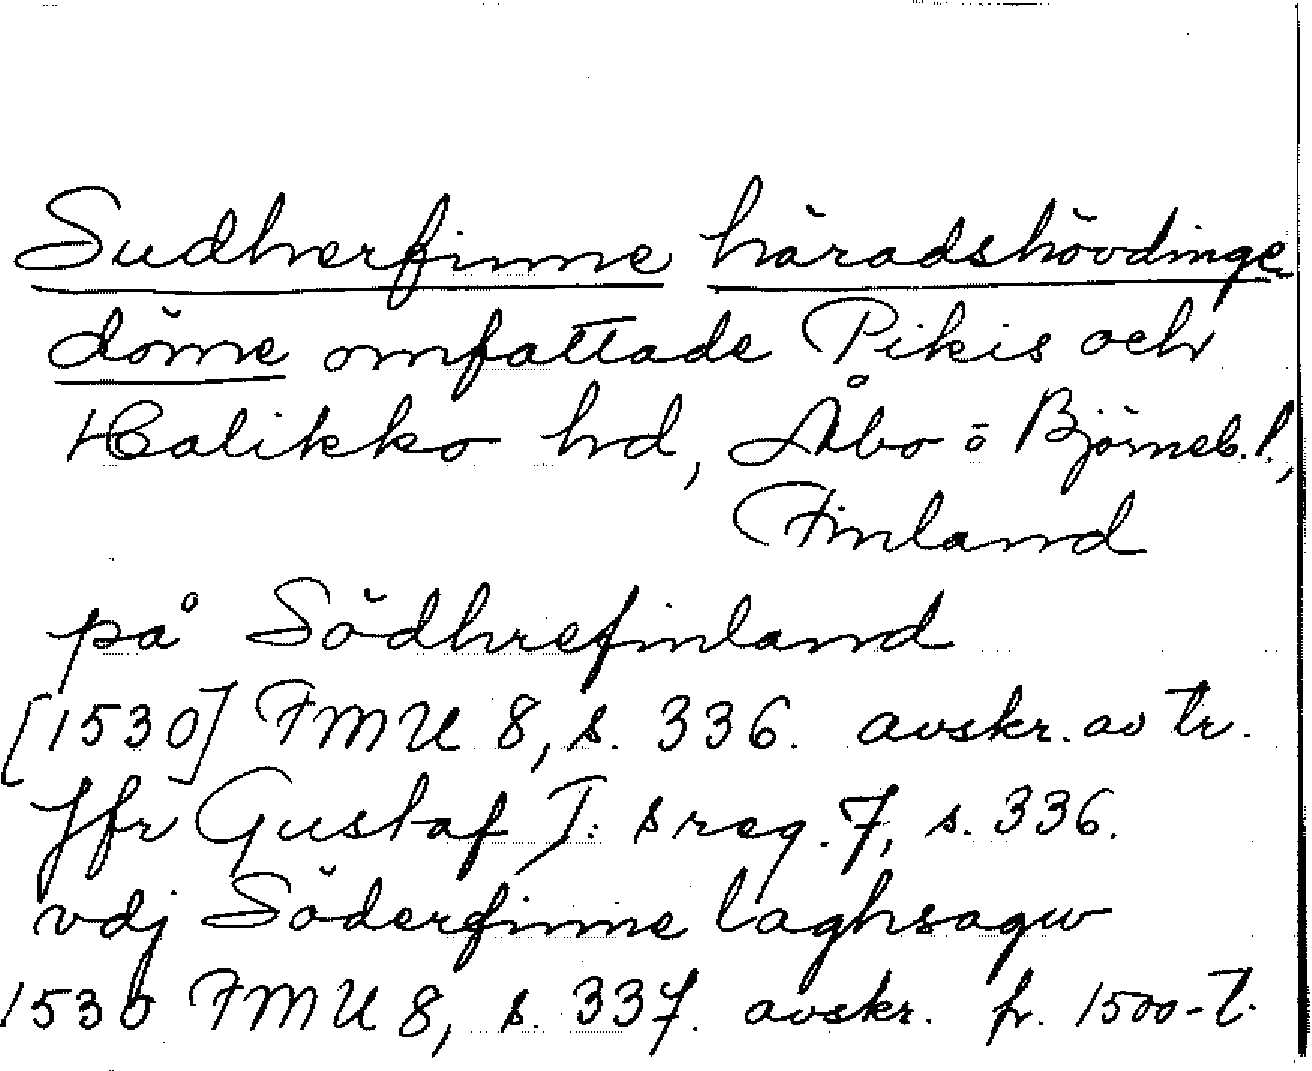 Sudherfinne häradshövdinge
döme omfattade Pikis och
Halikko hd, Åbo o Björneb. l.,
Finland
på Södhrefinland
[1530] FMU 8, s. 336. avskr. av tr.
Jfr Gustaf I:s reg. 7, s. 336.
vdj Söderfinne laghsagw
1530 FMU 8, s. 337. avskr. fr. 1500-t.